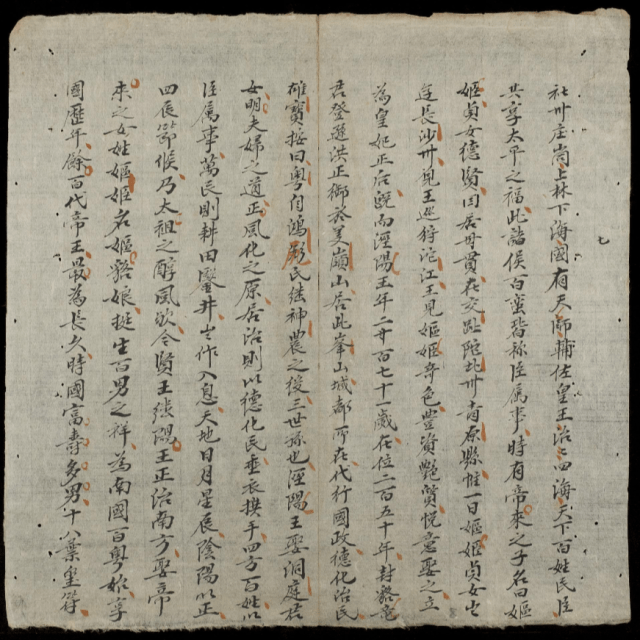 社卅庄崗上林下海國有天師輔佐皇王治之四海天下百姓民臣
共享太平之福此諸侯百蛮皆称臣属事時有帝來之子名曰嫗
姬貞女德賢田居母貫在交趾陀北卅首原縣惟一日嫗姬貞女出
逰長沙卅見王巡狩沱江王見嫗姬奇色豊資艶質悦意娶之立
為皇妃正后既而涇陽王年二千百七十一歲在位二百五十年封發毫
君登遊洪正御恭美頋山居此峯山城都所在代行國政德化治民
雄寶按曰粤自鴻厖氏継神農之後三世孫也涇陽王娶洞庭君
女明夫婦之道正風化之原居治則以德化民垂衣揆手四方百姓以
臣属事萬民則耕田鑿井出作入息天地日月星辰陰陽以正
四辰節候乃太祖之醇風欤今賢王隝王正治南方娶帝
來之女姓嫗姬名嫗貉娘挺生百男之祥為南國百粤始孚
國歷年餘百代帝王最為長久時國富壽多男十八葉皇符